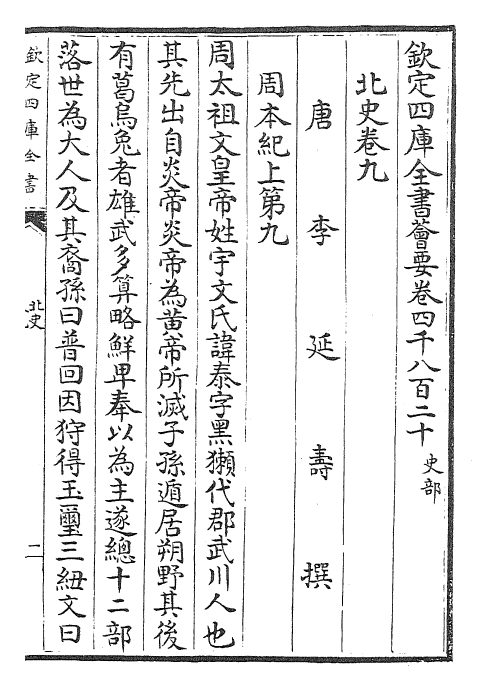 欽定四庫全書薈要卷四千八百二十 史部
北史卷九
唐 李 延 壽 撰
周本紀上第九
周太祖文皇帝姓宇文氏諱泰字黑獺代郡武川人也
其先出自炎帝炎帝為黄帝所滅子孫遁居朔野其後
有葛烏兔者雄武多算略鮮卑奉以為主遂總十二部
落世為大人及其裔孫曰普回因狩得玉璽三紐文曰
欽定四庫全書
北史
一